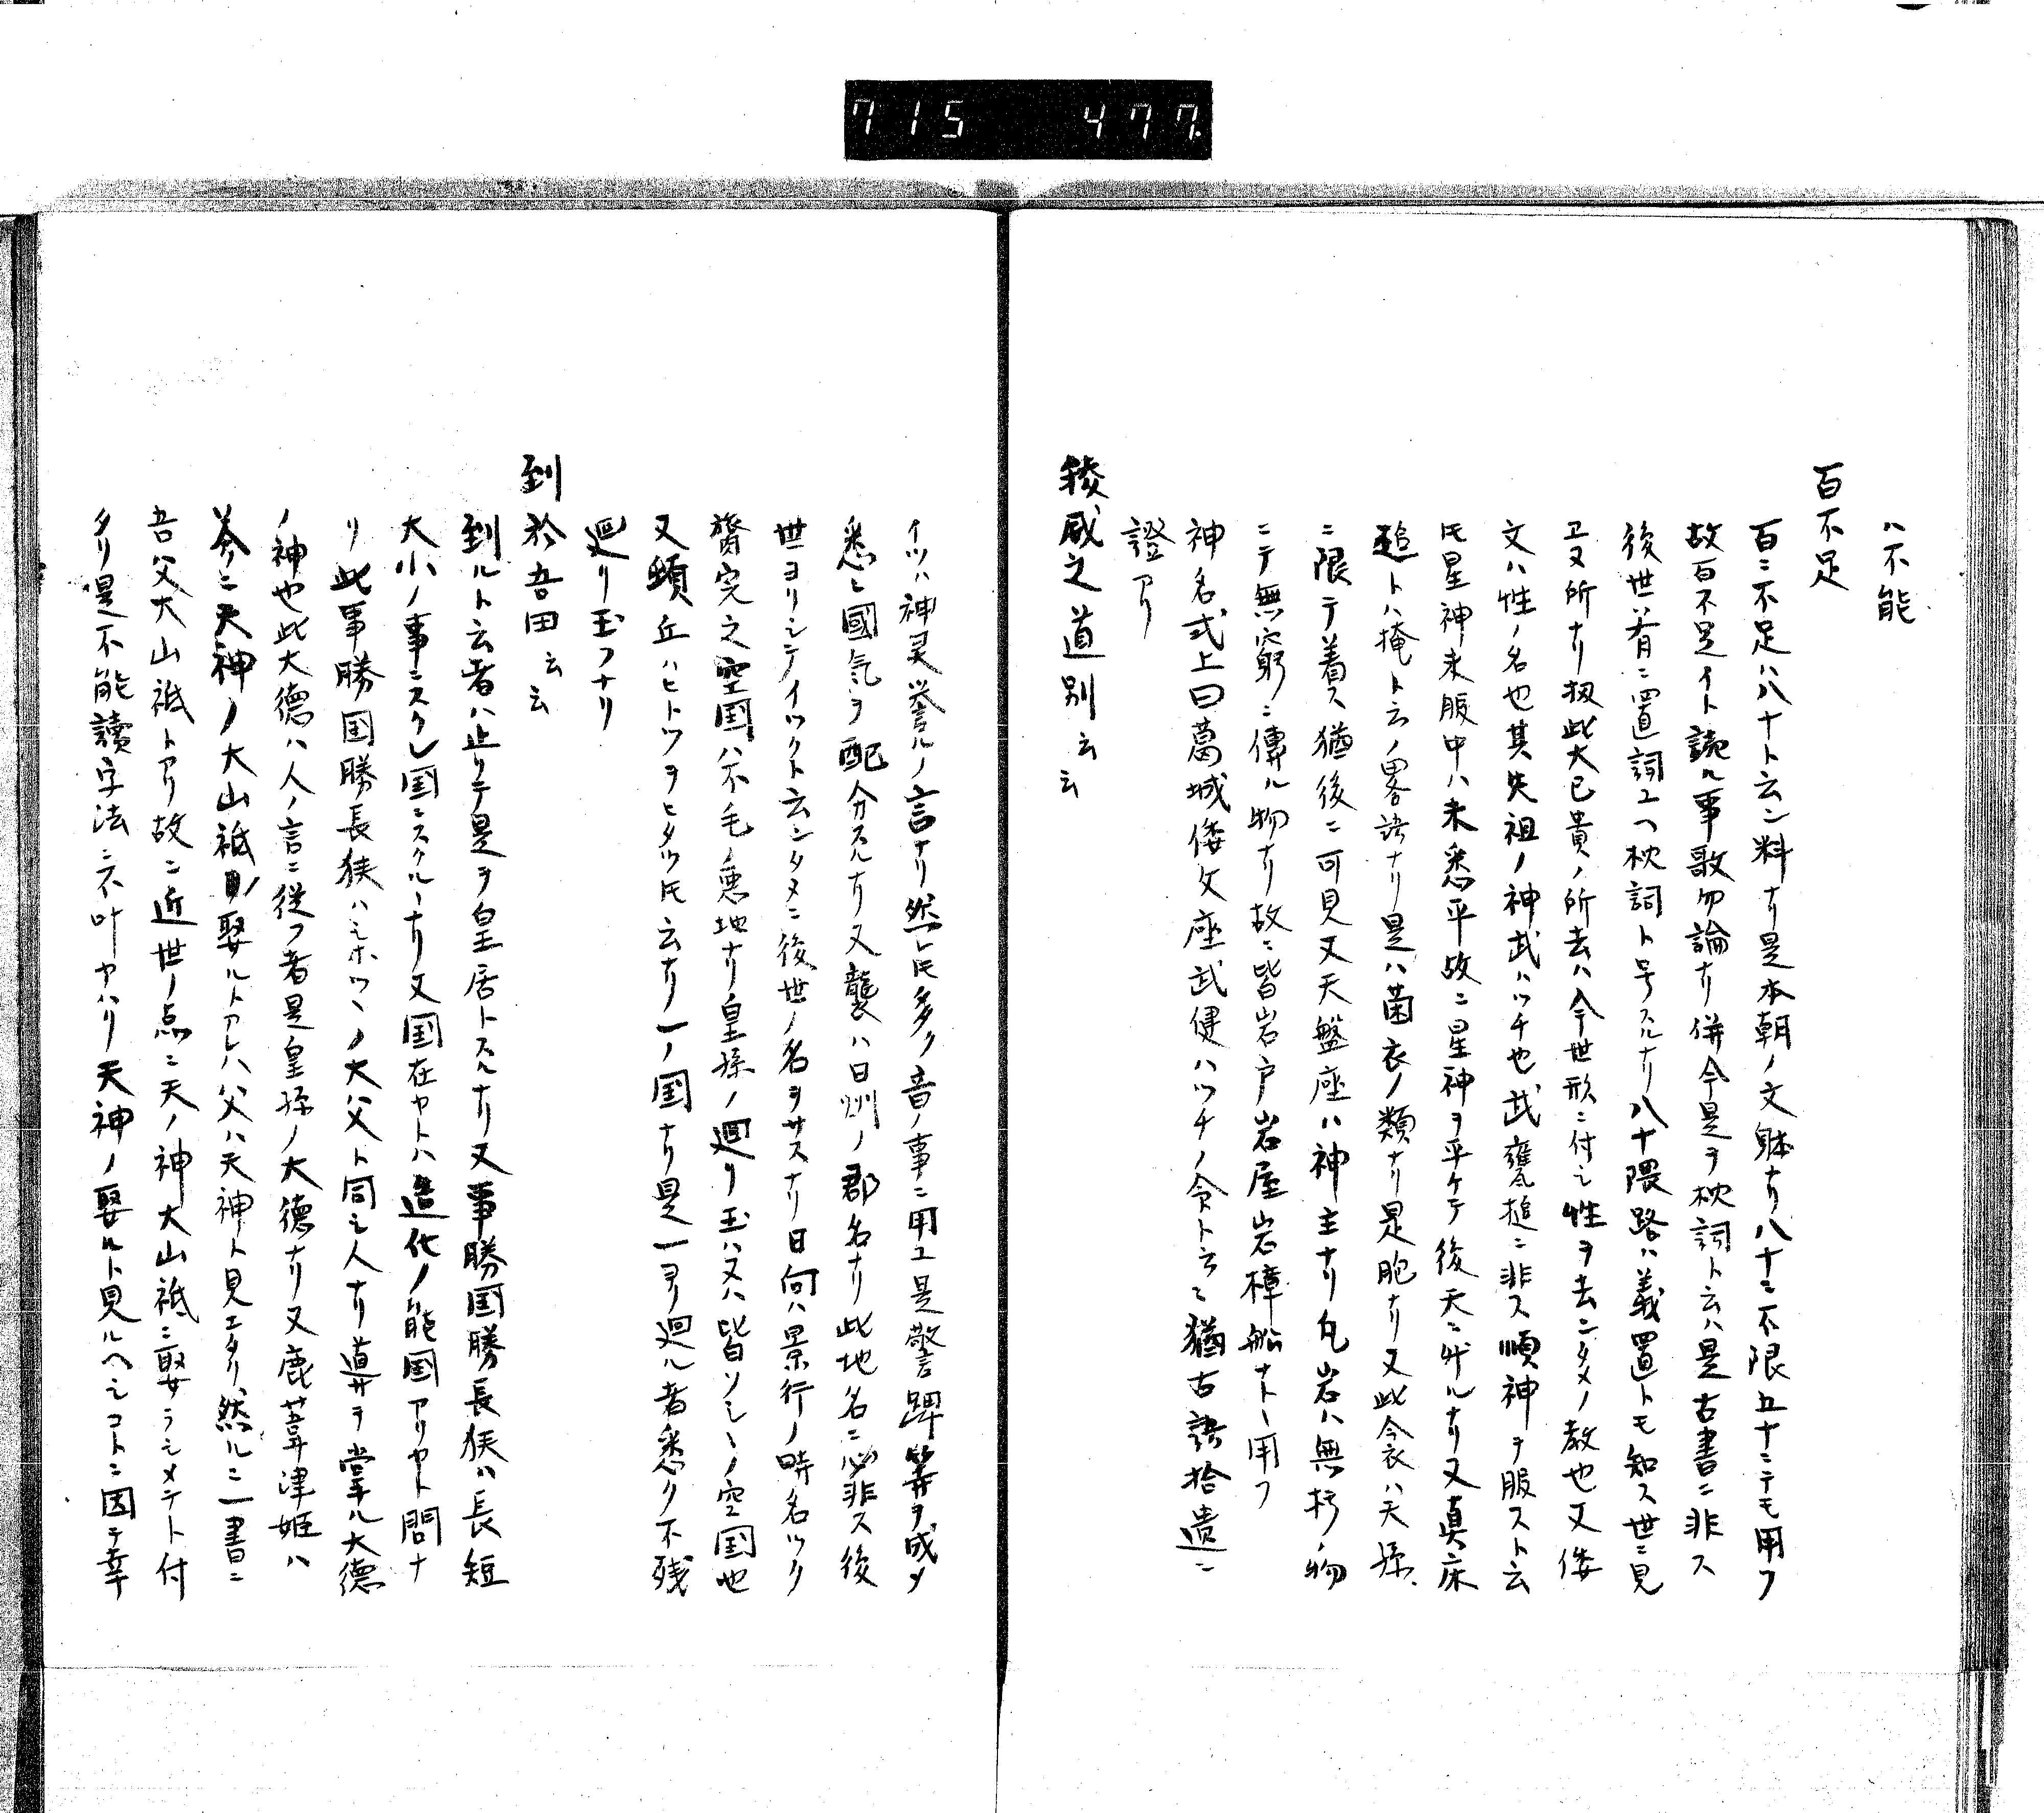 715 477
ハ不能
百不足
百ニ不足ハ八十ト云ン料ナリ是本朝ノ文躰ナリ八十ニ不限五十ニテモ用フ
故百不足イト読ル事歌勿論ナリ併今是ヲ枕詞ト云ハ是古書ニ非ス
後世者有ニ置詞エヘ枕詞ト号スルナリ八十隈路ハ義置トモ知ス世ニ見
ヱヌ所ナリ扨此大已貴ノ所去ハ今世形ニ付シ性ヲ去ンタメノ教也又倭
文ハ性ノ名也其先祖ノ神武ハツチ也武甕槌ニ非ス順神ヲ服スト云
ﾄﾓ星神未服中ハ未悉平故ニ星神ヲ平ケテ後天ニ昇ルナリ又真床
追トハ掩ト云ノ畧語ナリ是ハ菌衣ノ類ナリ是胞ナリ又此令衣ハ天孫
ニ限テ着ス猶後ニ可見又天盤座ハ神主ナリ凡岩ハ無朽ノ物
ニテ無窮ニ傳ル物ナリ故ニ皆岩戸岩屋岩樟船ナトヽ用フ
神名式上曰葛城倭文座武健ハツチノ命ト云ニ猶古語拾遺ニ
證アリ
稜威之道別云云
イツハ神灵挙ルノ言ナリ然ﾄﾓ多ク音ノ事ニ用ユ是警蹕等ヲ成メ
悉ヒ國気ヲ配分スルナリ又襲ハ日州ノ郡名ナリ此地名ニ必非ス後
世ヨリシテイツクト云ンタメニ後世ノ名ヲサスナリ日向ハ景行ノ時名ツク
膂宍之空国ハ不毛ノ悪地ナリ皇孫ノ廻リ玉ハヌハ皆ソシヽノ空国也
又頓丘ハヒトツヲヒタツﾄﾓ云ナリ一ノ国ナリ是一ヨリ廻ル者悉ク不残
廻リ玉フナリ
到於吾田云云
到ルト云者ハ止リテ是ヲ皇居トスルナリ又事勝国勝長狭ハ長短
大小ノ事ニスクレ国ニスクルヽナリ又国在ヤトハ造化ノ能国アリヤト問ナ
リ此事勝国勝長狭ハシホツヽノ大父ト同シ人ナリ道サヲ掌ル大徳
ノ神也此大徳ハ人ノ言ニ従フ者是皇孫ノ大徳ナリ又鹿葦津姫ハ
天神ノ大山祇ノ娶ルトアレハ父ハ天神ト見エタリ然ルニ一書ニ
吾父大山祇トアリ故ニ近世ノ点ニ天ノ神大山祇ニ娶ラシメテト付
タリ是不能讀字法ニ不叶ヤハリ天神ノ娶ルト見ルヘシコトニ因テ幸